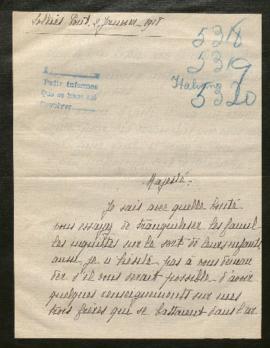 2 Janvier 1918
5318
5319
5320
Pedir informes
Que se haga así
Majesté:
Je sais avec quelle bonté
vous essayez de tranquiliser les famil
les inquiètes sur le sort de leurs enfants,
aussi je n'hésite pas à vous deman
der s'il vous serait possible d'avoir
quelques renseignements sur mes
trois frères qui se battaient dans l'ar